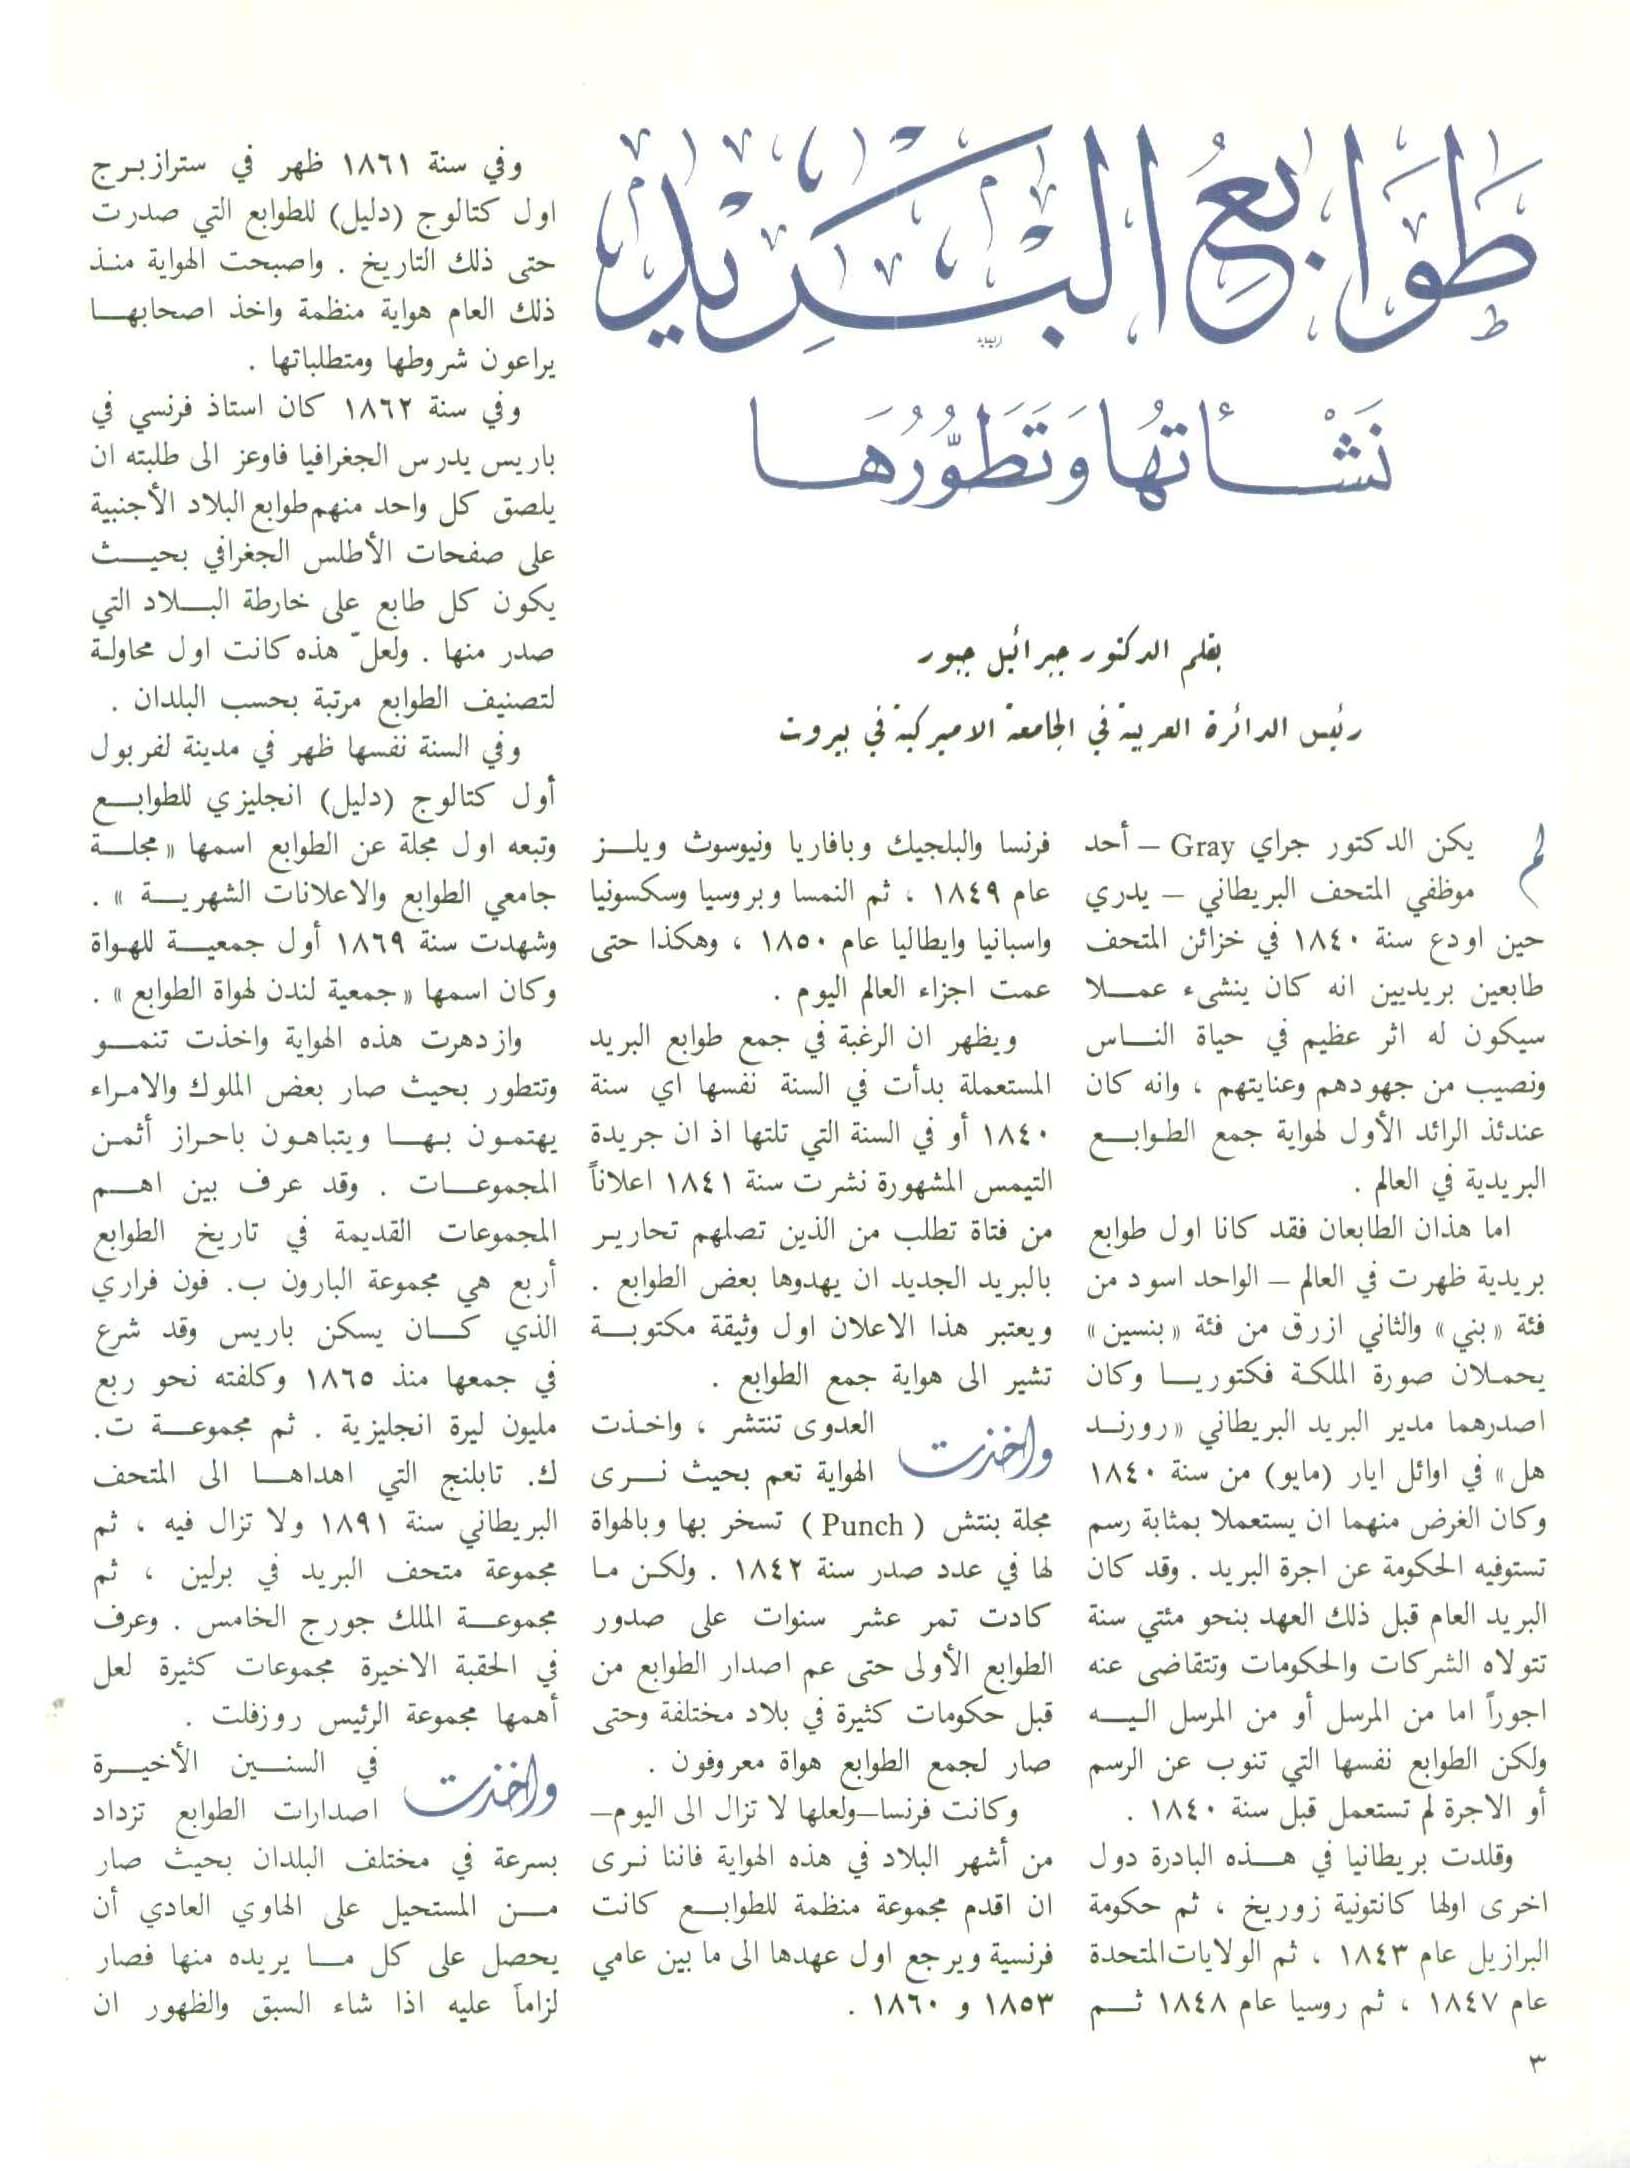 طَوَابعُ البَرِيْد
نَشْأتهَا وَتَطَوُّرُهَا
بقلم الدكتور جبرائيل جبور
رئيس الدائرة العربية في الجامعة الاميركية في بيروت
لم يكن الدكتور جراي Gray – أحد
موظفي المتحف البريطاني – يدري
حين اودع سنة ١٨٤٠ في خزائن المتحف
طابعين بريديين انه كان ينشىء عمـــلا
سيكون له اثر عظيم في حياة النــاس
ونصيب من جهودهم وعنايتهم ، وانه كان
عندئذ الرائد الأول لهواية جمع الطوابــع
البريدية في العالم .
اما هذان الطابعان فقد كانا اول طوابع
بريدية ظهرت في العالم – الواحد اسود من
فئة «بني» والثاني ازرق من فئة «بنسين»
يحملان صورة الملكة فكتوريــا وكان
اصدرهما مدير البريد البريطاني «رورنــد
هل» في اوائل ايار (مايو) من سنة ١٨٤٠
وكان الغرض منهما ان يستعملا بمثابة رسم
تستوفيه الحكومة عن اجرة البريد . وقد كان
البريد العام قبل ذلك العهد بنحو مئتي سنة
تتولاه الشركات والحكومات وتتقاضى عنه
اجوراً اما من المرسل أو من المرسل اليــه
ولكن الطوابع نفسها التي تنوب عن الرسم
أو الاجرة لم تستعمل قبل سنة ١٨٤٠ .
وقلدت بريطانيا في هــذه البادرة دول
اخرى اولها كانتونية زوريخ ، ثم حكومة
البرازيل عام ١٨٤٣ ، ثم الولايات المتحدة
عام ١٨٤٧ ، ثم روسيا عام ١٨٤٨ ثــم
فرنسا والبلجيك وبافاريا ونيوسوث ويلــز
عام ١٨٤٩ ، ثم النمسا وبروسيا وسكسونيا
واسبانيا وايطاليا عام ١٨٥٠ ، وهكذا حتى
عمت اجزاء العالم اليوم .
ويظهر ان الرغبة في جمع طوابع البريد
المستعملة بدأت في السنة نفسها اي سنة
١٨٤٠ أو في السنة التي تلتها اذ ان جريدة
التيمس المشهورة نشرت سنة ١٨٤١ اعلاناً
من فتاة تطلب من الذين تصلهم تحارير
بالبريد الجديد ان يهدوها بعض الطوابع .
ويعتبر هذا الاعلان اول وثيقة مكتوبــة
تشير الى هواية جمع الطوابع .
واخذت العدوى تنتشر ، واخـذت
الهواية تعم بحيث نــرى
مجلة بنتش ( Punch ) تسخر بها وبالهواة
لها في عدد صدر سنة ١٨٤٢ . ولكـن مـا
كادت تمر عشر سنوات على صدور
الطوابع الأولى حتى عم اصدار الطوابع من
قبل حكومات كثيرة في بلاد مختلفة وحتى
صار لجمع الطوابع هواة معروفون .
وكانت فرنسا–ولعلها لا تزال الى اليوم–
من أشهر البلاد في هذه الهواية فاننا نـرى
ان اقدم مجموعة منظمة للطوابــع كانت
فرنسية ويرجع اول عهدها الى ما بين عامي
١٨٥٣ و ١٨٦٠ .
وفي سنة ١٨٦١ ظهر في سترازبـرج
اول كتالوج (دليل) للطوابع التي صدرت
حتى ذلك التاريخ . واصبحت الهواية منـذ
ذلك العام هواية منظمة واخذ اصحابهــا
يراعون شروطها ومتطلباتها .
وفي سنة ١٨٦٢ كان استاذ فرنسي في
باريس يدرس الجغرافيا فاوعز الى طلبته ان
يلصق كل واحد منهم طوابع البلاد الأجنبية
على صفحات الأطلس الجغرافي بحيــث
يكون كل طابع على خارطة البــلاد التي
صدر منها . ولعلّ هذه كانت اول محاولـة
لتصنيف الطوابع مرتبة بحسب البلدان .
وفي السنة نفسها ظهر في مدينة لفربول
أول كتالوج (دليل) انجليزي للطوابــع
وتبعه اول مجلة عن الطوابع اسمها «مجلــة
جامعي الطوابع والاعلانات الشهريــة » .
وشهدت سنة ١٨٦٩ أول جمعيــة للهـواة
وكان اسمها «جمعية لندن لهواة الطوابع» .
وازدهرت هذه الهواية واخذت تنمــو
وتتطور بحيث صار بعض الملوك والامراء
يهتمـون بـهــا ويتباهـون باحـراز أثمـن
المجموعــات . وقد عرف بين اهــم
المجموعات القديمة في تاريخ الطوابع
أربع هي مجموعة البارون ب. فون فراري
الذي كــان يسكن باريس وقد شرع
في جمعها منذ ١٨٦٥ وكلفته نحو ربع
مليون ليرة انجليزية . ثم مجموعــة ت.
ك. تابلنج التي اهداهــا الى المتحف
البريطاني سنة ١٨٩١ ولا تزال فيه ، ثم
مجموعة متحف البريد في برلين ، ثم
مجموعــة الملك جورج الخامس . وعرف
في الحقبة الاخيرة مجموعات كثيرة لعل
أهمها مجموعة الرئيس روزفلت .
واخذت في السنــين الأخيـرة
اصدارات الطوابع تزداد
بسرعة في مختلف البلدان بحيث صار
مــن المستحيل على الهاوي العادي أن
يحصل على كل مــا يريده منها فصار
لزاماً عليه اذا شاء السبق والظهور ان
٣